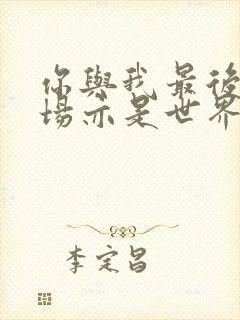 你與我最後
場亦是世界
李定昌